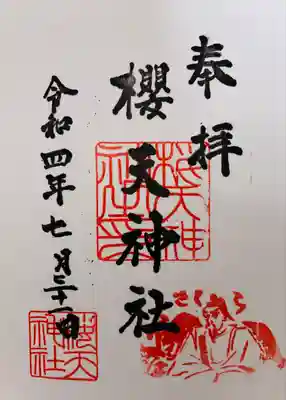 奉拝
櫻天神社
令和四年七月三十一日
櫻天神社印
さくら
櫻天神社